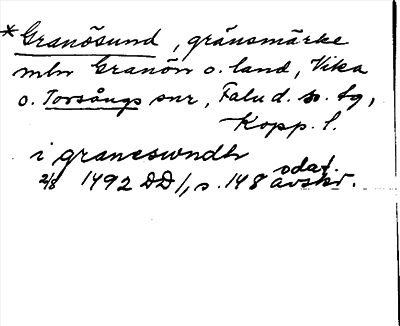 *Granösund, gränsmärke
mln Granön o. land, Vika
o. Torsångs snr, Falu d. so. tg,
Kopp. l.
i graneswndh
2/8 1492 DD 1, s. 148 odat.
avskr.